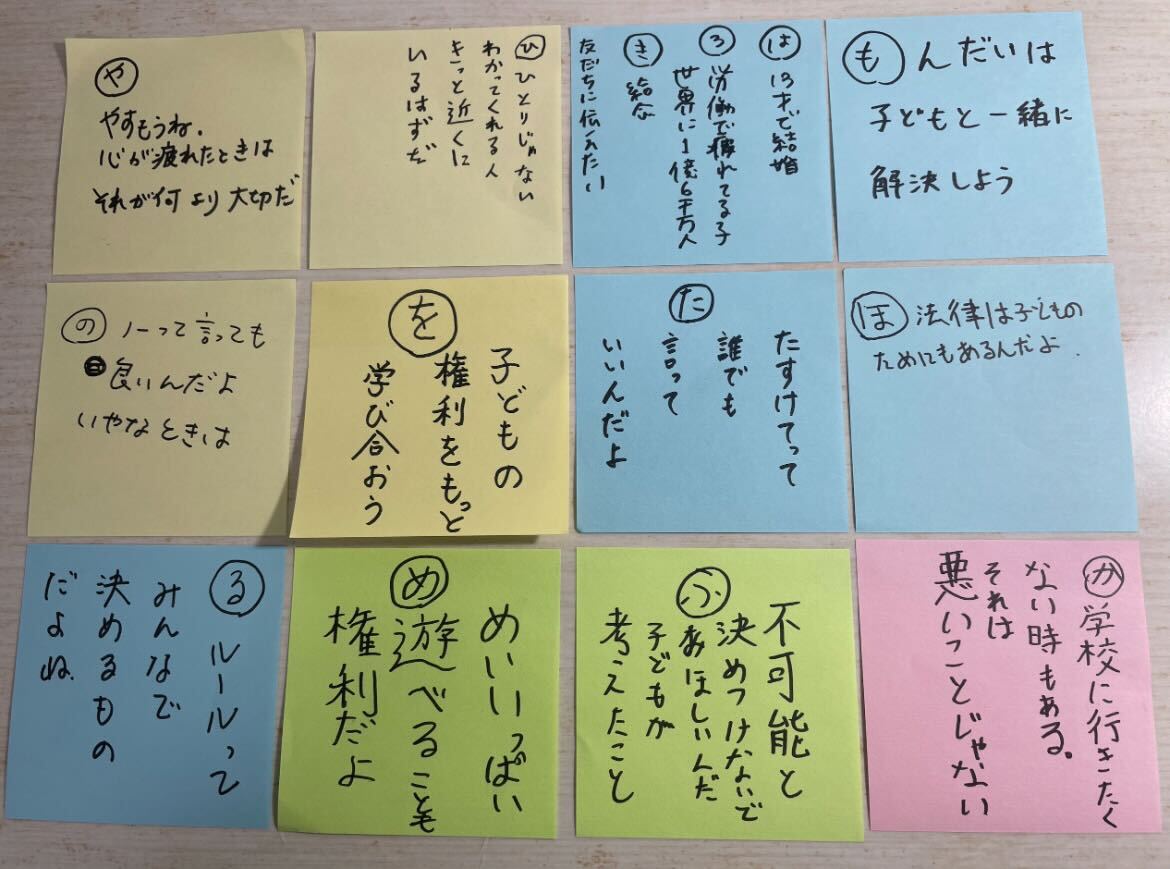 や
やすもうね.
心が疲れたときは
それが何より大切だ
ひ ひとりじゃない
わかってくれる人
きっと近くに
いるはずだ
は 13才で結婚
ろ 労働で疲れてる子
世界に1億6千万人
き 給食
友だちに伝えたい
も んだいは
子どもと一緒に
解決しよう
の ノーって言っても
良いんだよ
いやなときは
を
子どもの
権利をもっと
学び合おう
た
たすけてって
誰でも
言って
いいんだよ
ほ 法律は子どもの
ためにもあるんだよ.
る ルールって
みんなで
決めるもの
だよね
め
めいいっぱい
遊べることも
権利だよ
ふ
不可能と
決めつけないで
あほしいんだ
子どもが
考えたこと
か 学校に行きたく
ない時もある。
それは
悪いことじゃない